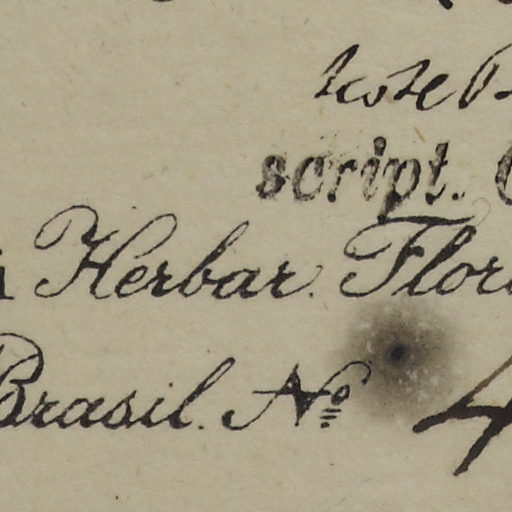 teste
script.
Herbar. Flor
Brasil. No 4